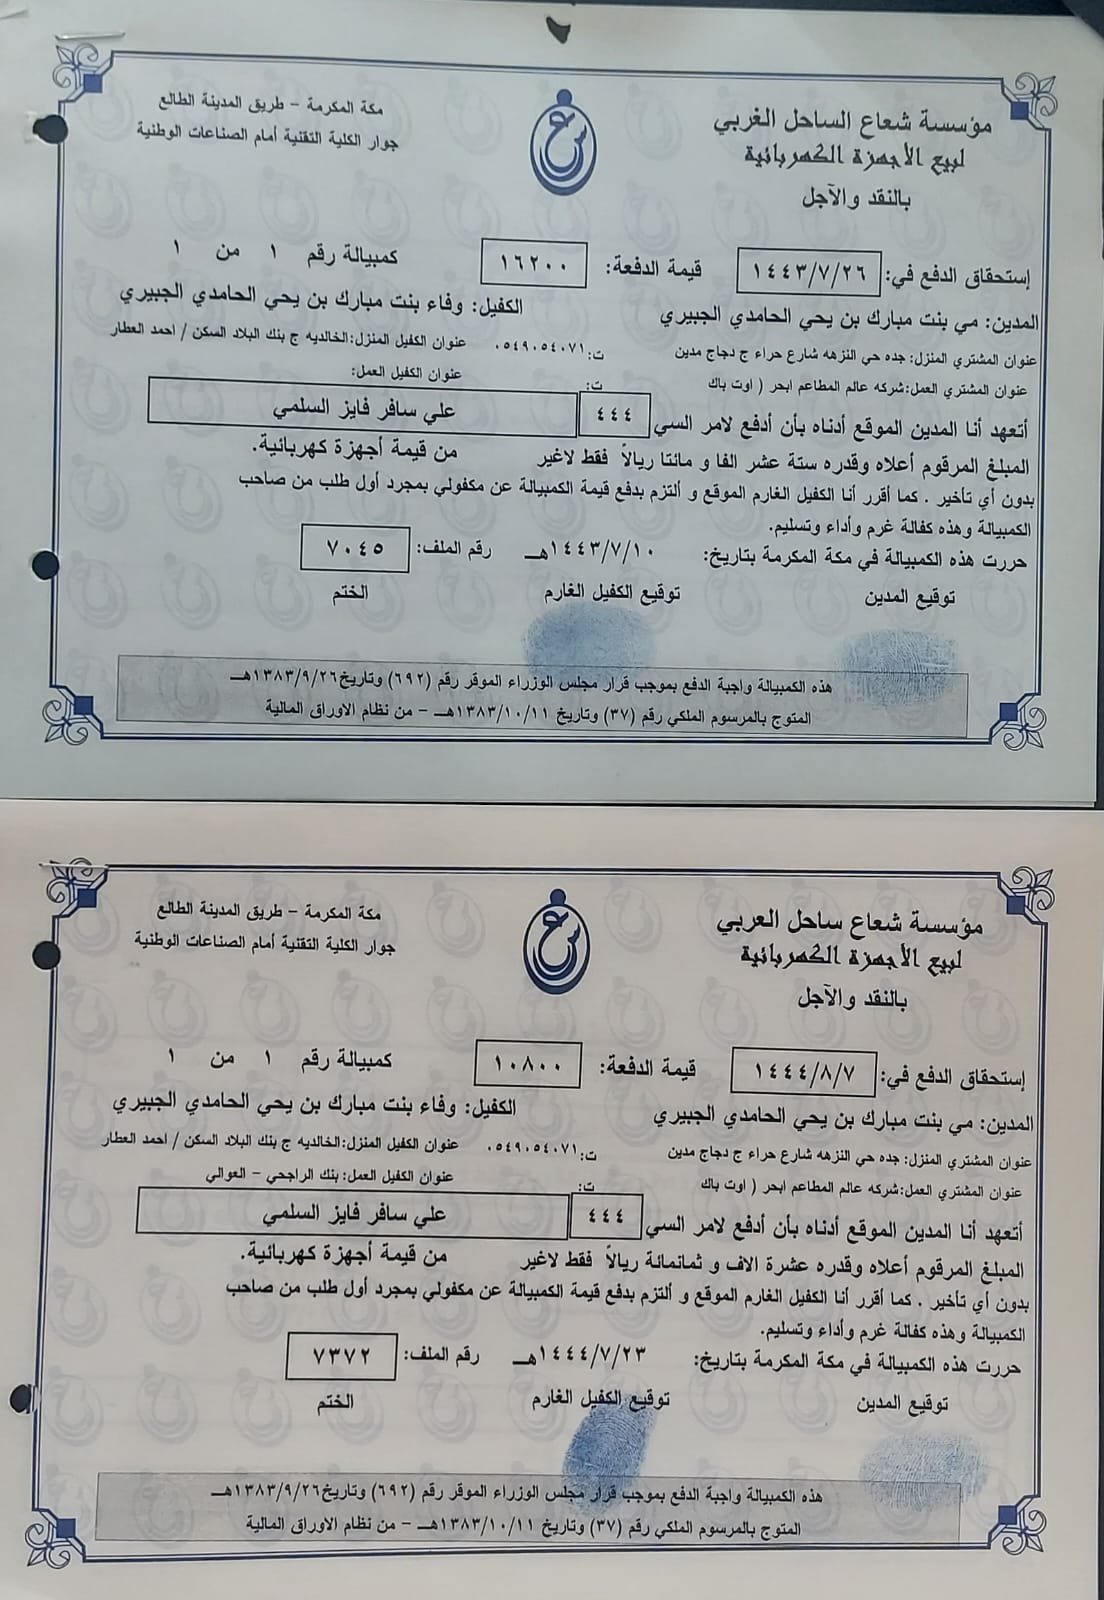 مؤسسة شعاع الساحل الغربي
لبيع الأجهزة الكهربائية
بالنقد والآجل
مكة المكرمة - طريق المدينة الطالع
جوار الكلية التقنية أمام الصناعات الوطنية
إستحقاق الدفع في: ١٤٤٣/٧/٢٦ قيمة الدفعة: ١٦٢٠٠ كمبيالة رقم ١ من ١
المدين: مي بنت مبارك بن يحي الحامدي الجبيري الكفيل: وفاء بنت مبارك بن يحي الحامدي الجبيري
عنوان المشتري المنزل: جده حي النزهه شارع حراء ج دجاج مدين ت: ٠٥٤٩٠٥٤٠٧١ عنوان الكفيل المنزل:الخالديه ج بنك البلاد السكن / احمد العطار
عنوان المشتري العمل:شركه عالم المطاعم ابحر ( اوت باك ت: عنوان الكفيل العمل:
أتعهد أنا المدين الموقع أدناه بأن أدفع لامر السي ٤٤٤ علي سافر فايز السلمي
المبلغ المرقوم أعلاه وقدره ستة عشر الفا و مائتا ريالاً فقط لاغير من قيمة أجهزة كهربائية.
بدون أي تأخير . كما أقرر أنا الكفيل الغارم الموقع و ألتزم بدفع قيمة الكمبيالة عن مكفولي بمجرد أول طلب من صاحب
الكمبيالة وهذه كفالة غرم وأداء وتسليم.
حررت هذه الكمبيالة في مكة المكرمة بتاريخ: ١٤٤٣/٧/١٠هـ رقم الملف: ٧٠٤٥
توقيع المدين توقيع الكفيل الغارم الختم
هذه الكمبيالة واجبة الدفع بموجب قرار مجلس الوزراء الموقر رقم (٦٩٢) وتاريخ١٣٨٣/٩/٢٦هـ
المتوج بالمرسوم الملكي رقم (٣٧) وتاريخ ١٣٨٣/١٠/١١هـ - من نظام الاوراق المالية
مؤسسة شعاع ساحل العربي
لبيع الأجهزة الكهربائية
بالنقد والآجل
مكة المكرمة - طريق المدينة الطالع
جوار الكلية التقنية أمام الصناعات الوطنية
إستحقاق الدفع في: ١٤٤٤/٨/٧ قيمة الدفعة: ١٠٨٠٠ كمبيالة رقم ١ من ١
المدين: مي بنت مبارك بن يحي الحامدي الجبيري الكفيل: وفاء بنت مبارك بن يحي الحامدي الجبيري
عنوان المشتري المنزل: جده حي النزهه شارع حراء ج دجاج مدين ت: ٠٥٤٩٠٥٤٠٧١ عنوان الكفيل المنزل:الخالديه ج بنك البلاد السكن / احمد العطار
عنوان المشتري العمل:شركه عالم المطاعم ابحر ( اوت باك ت: عنوان الكفيل العمل: بنك الراجحي - العوالي
أتعهد أنا المدين الموقع أدناه بأن أدفع لامر السي ٤٤٤ علي سافر فايز السلمي
المبلغ المرقوم أعلاه وقدره عشرة الاف و ثمانمائة ريالاً فقط لاغير من قيمة أجهزة كهربائية.
بدون أي تأخير . كما أقرر أنا الكفيل الغارم الموقع و ألتزم بدفع قيمة الكمبيالة عن مكفولي بمجرد أول طلب من صاحب
الكمبيالة وهذه كفالة غرم وأداء وتسليم.
حررت هذه الكمبيالة في مكة المكرمة بتاريخ: ١٤٤٤/٧/٢٣هـ رقم الملف: ٧٣٧٢
توقيع المدين توقيع الكفيل الغارم الختم
هذه الكمبيالة واجبة الدفع بموجب قرار مجلس الوزراء الموقر رقم (٦٩٢) وتاريخ١٣٨٣/٩/٢٦هـ
المتوج بالمرسوم الملكي رقم (٣٧) وتاريخ ١٣٨٣/١٠/١١هـ - من نظام الاوراق المالية